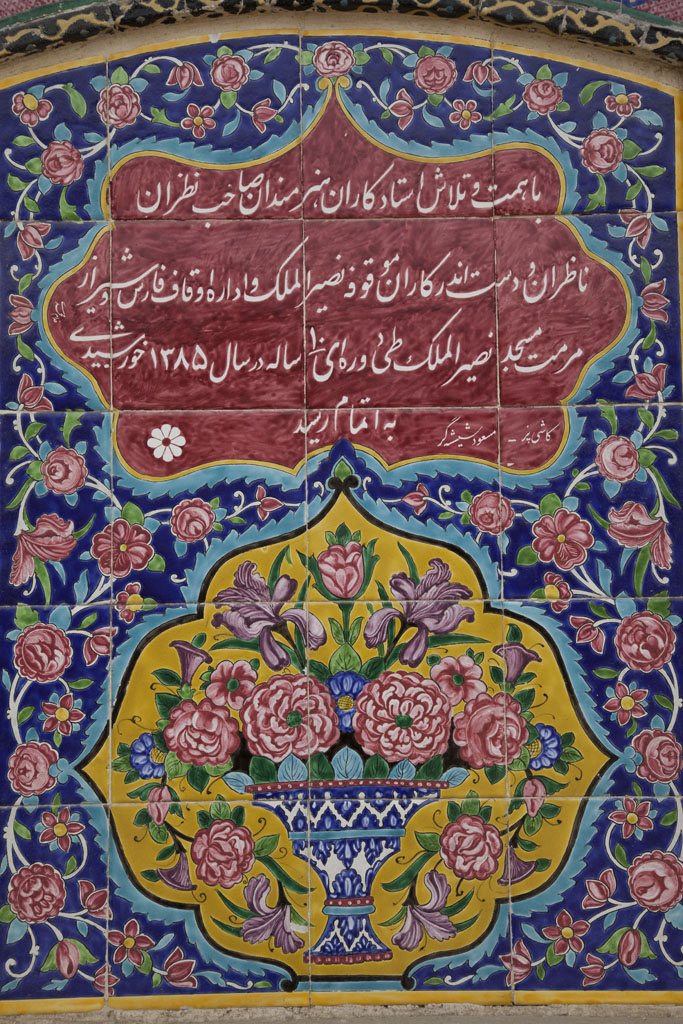 با همت و تلاش استادکاران هنرمندان صاحب نظران
ناظران و دست اندرکاران موقوفه نصیر الملک و اداره اوقاف فارس و شیراز
مرمت مسجد نصیر الملک طی دوره ای ۱۰ ساله در سال ۱۳۸۵ خورشیدی
به اتمام رسید
کاشی پز - مسعود شیشه گر